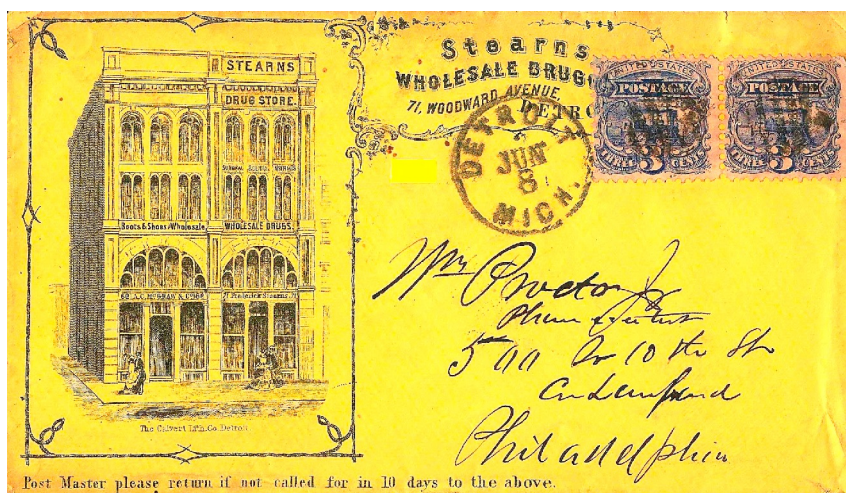 STEARNS
DRUG STORE.
Boots & Shoes Wholesale
WHOLESALE DRUGS.
71 Frederick Stearns. 71
The Calvert Lith. Co. Detroit
Stearns
WHOLESALE DRUG
71, WOODWARD AVENUE,
DETRO
UNITED STATES
POSTAGE
THREE 3 CENTS
UNITED STATES
POSTAGE
THREE 3 CENTS
DETROIT
JUN
8
MICH.
Wm Procter Jr
10th St
Philadelphia
Post Master please return if not called for in 10 days to the above.